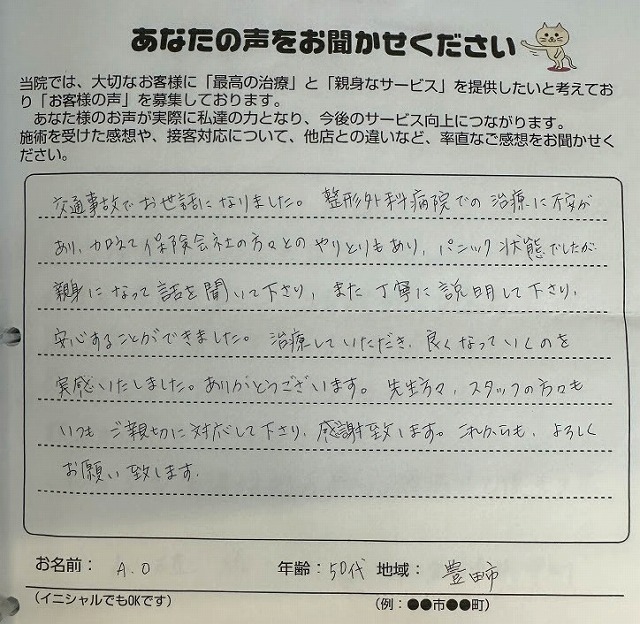 あなたの声をお聞かせください
当院では、大切なお客様に「最高の治療」と「親身なサービス」を提供したいと考えてお
り「お客様の声」を募集しております。
あなた様のお声が実際に私達の力となり、今後のサービス向上につながります。
施術を受けた感想や、接客対応について、他店との違いなど、率直なご感想をお聞かせく
ださい。
交通事故でお世話になりました。整形外科病院での治療に不安が
あり、加えて保険会社の方々とのやりとりもあり、パニック状態でしたが
親身になって話を聞いて下さり、また丁寧に説明して下さり、
安心することができました。治療していただき、良くなっていくのを
実感いたしました。ありがとうございます。先生方々、スタッフの方々も
いつもご親切に対応して下さり、感謝致します。これからも、よろしく
お願い致します.
お名前： A.O 年齢：50代 地域： 豊田市
（イニシャルでもOKです） （例：●●市●●町）